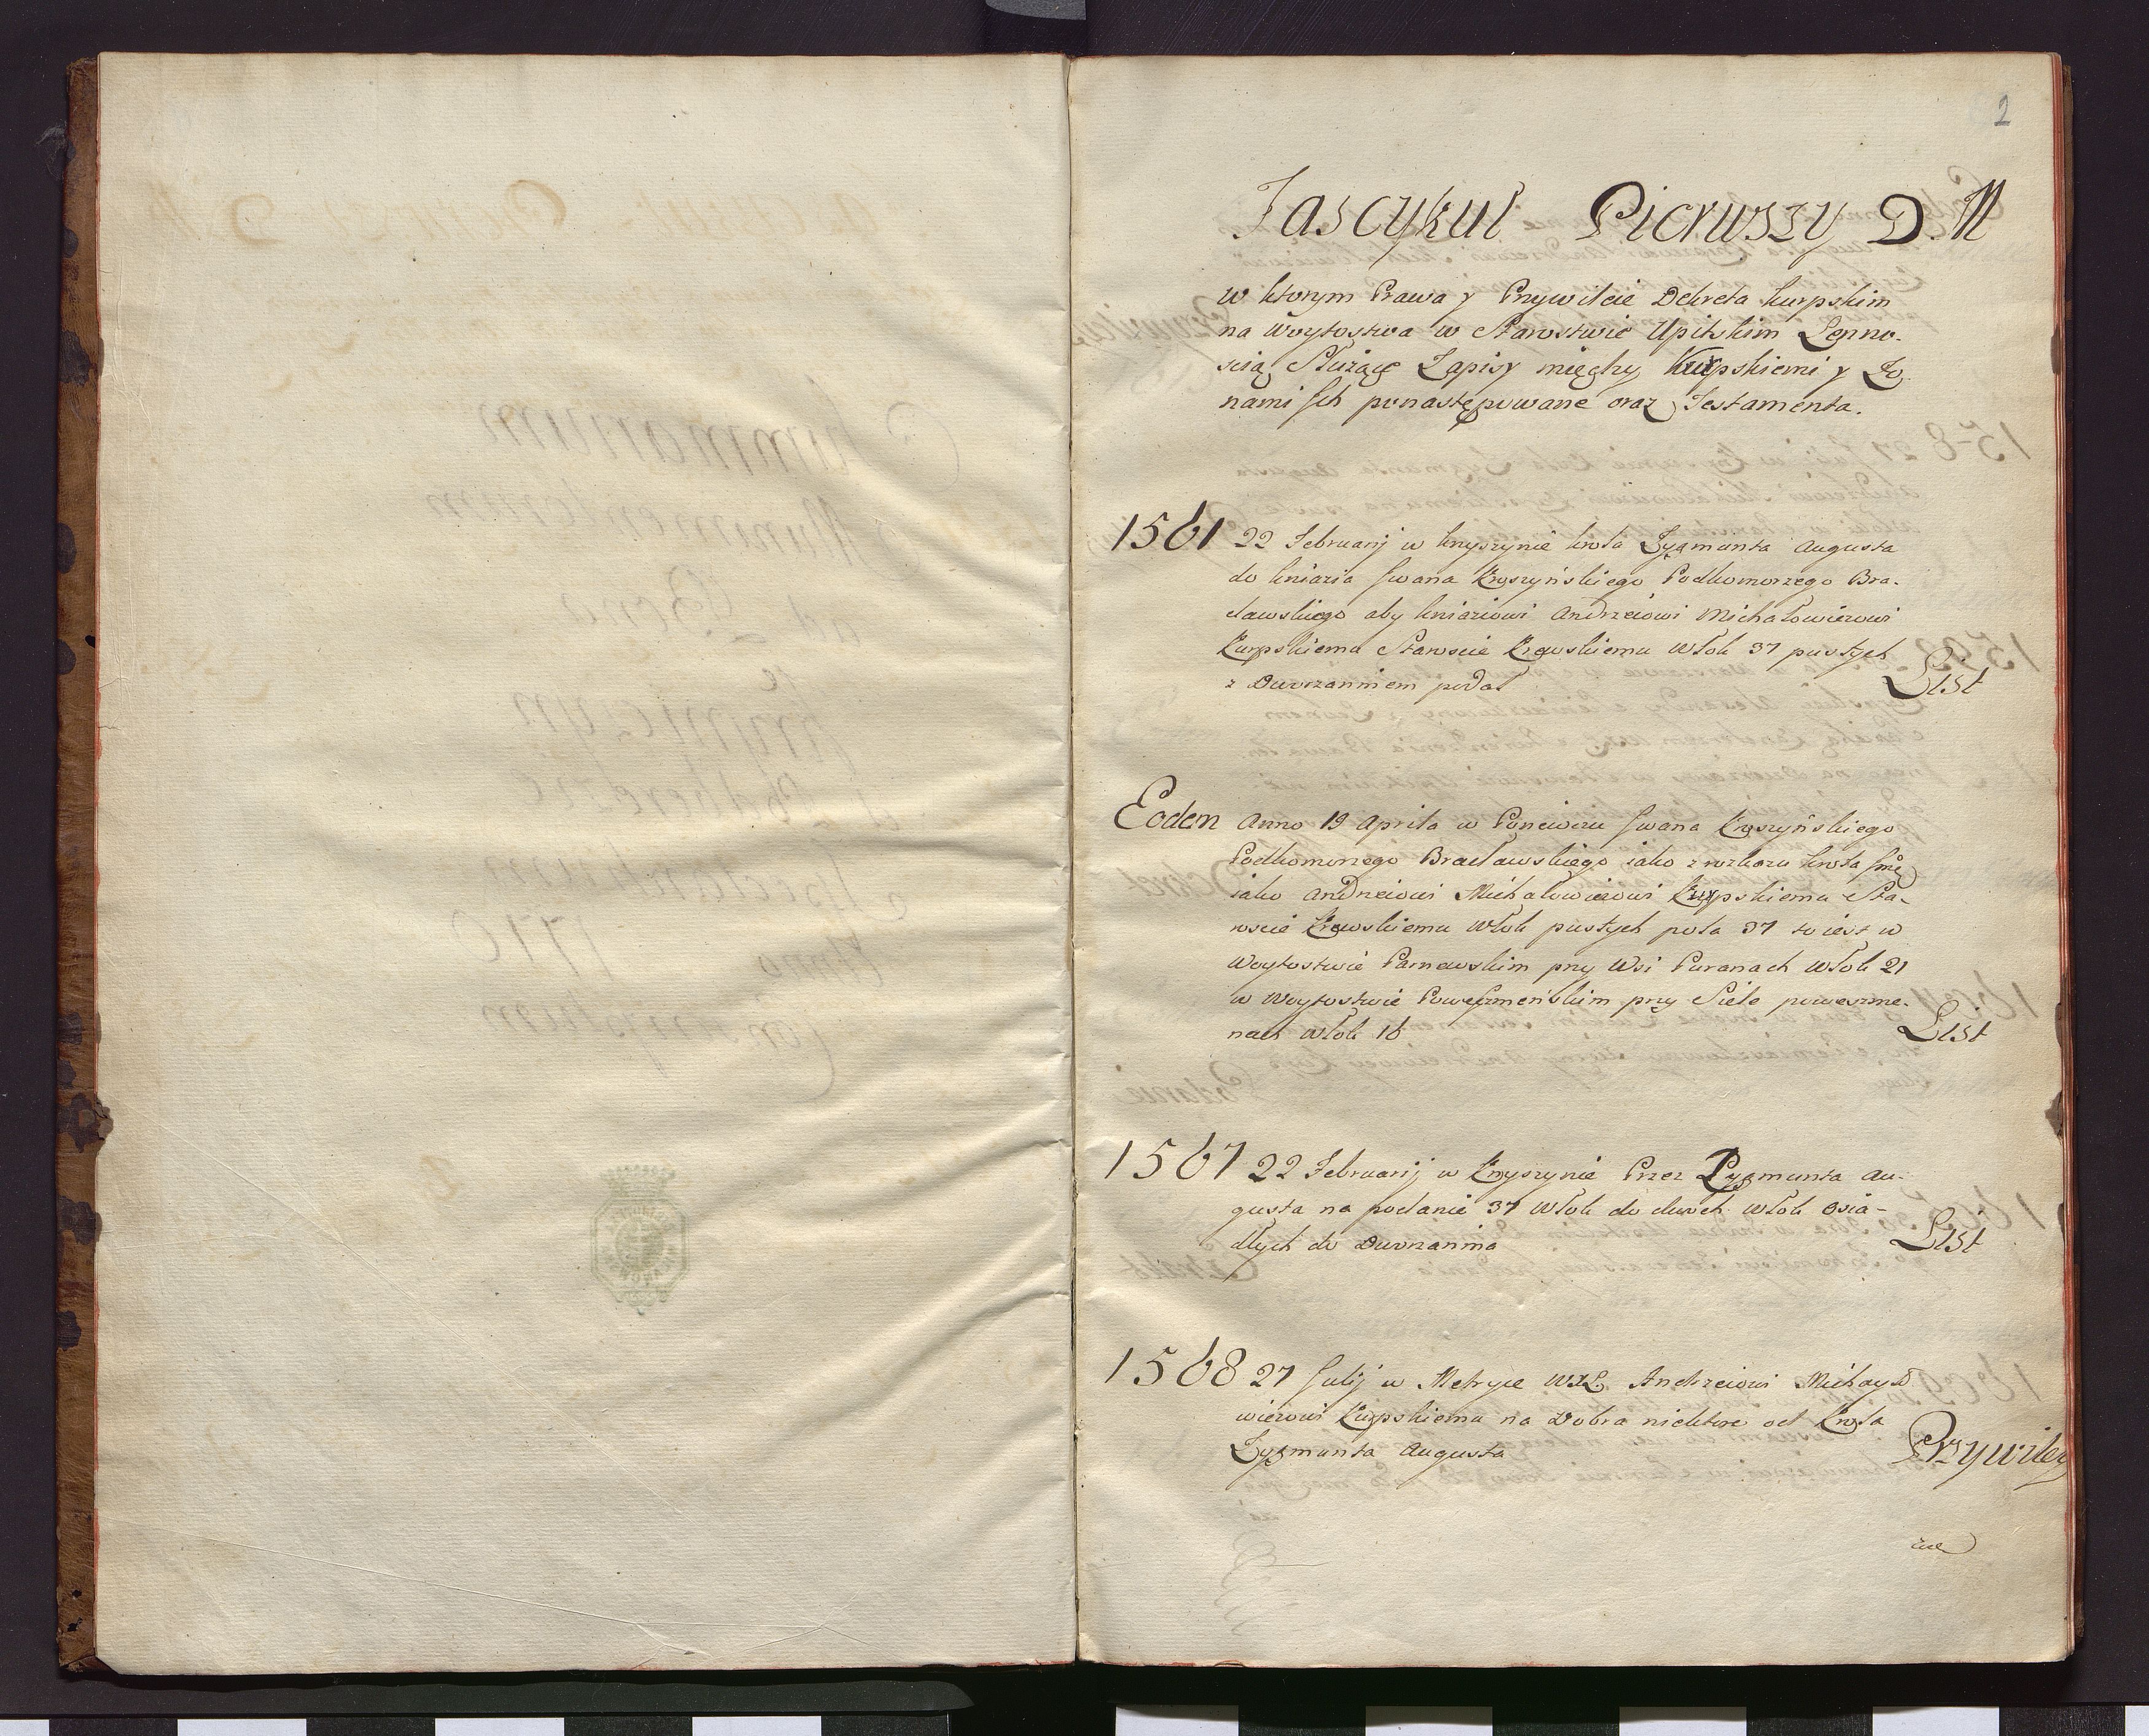 2
Fascykuł Pierwszy D. M
w ktorym Prawa y Przywileie Dekreta kurpskim
na Woytostwa w Starostwie Upitskim Lenno-
scią Służące Zapisy między Kurpskiemi y Żo
nami Ich ponastępowane oraz Testamenta.
1561 22 Februarij w knyszynie krola Zygmunta Augusta
do kniazia Iwana Kroszyńskiego Podkomorzego Bra-
cławskiego aby kniaziowi Andrzeiowi Michałowiczowi
Kurpskiemu Staroscie Krewskiemu włok 37 pustych
z Dworzanniem podał List
Eodem Anno 19 Aprila w Poniewizu Iwana Kroszyńskiego
Podkomorzego Bracławskiego iako z rozkazu krola Jmę
iako Andrzeiowi Michałowiczowi Kurpskiemu Sta-
roscie Krewskiemu włok pustych pola 37 to iest w
Woytostwie Parnawskim przy Wsi Puranach włok 21
w Woytostwie Poweszmeńskim przy Siele poweszme-
nach włok 16 List
1567 22 Februarij w Knyszynie Przez Zygmunta Au-
gusta na podanie 37 włok do dwoch włok Osia-
dłych do Dworzanina List
1568 27 Julij w Metryce WXL Andrzeiowi Michayło
wiczowi Kurpskiemu na Dobra niektore od Krola
Zygmunta Augusta Przywiley